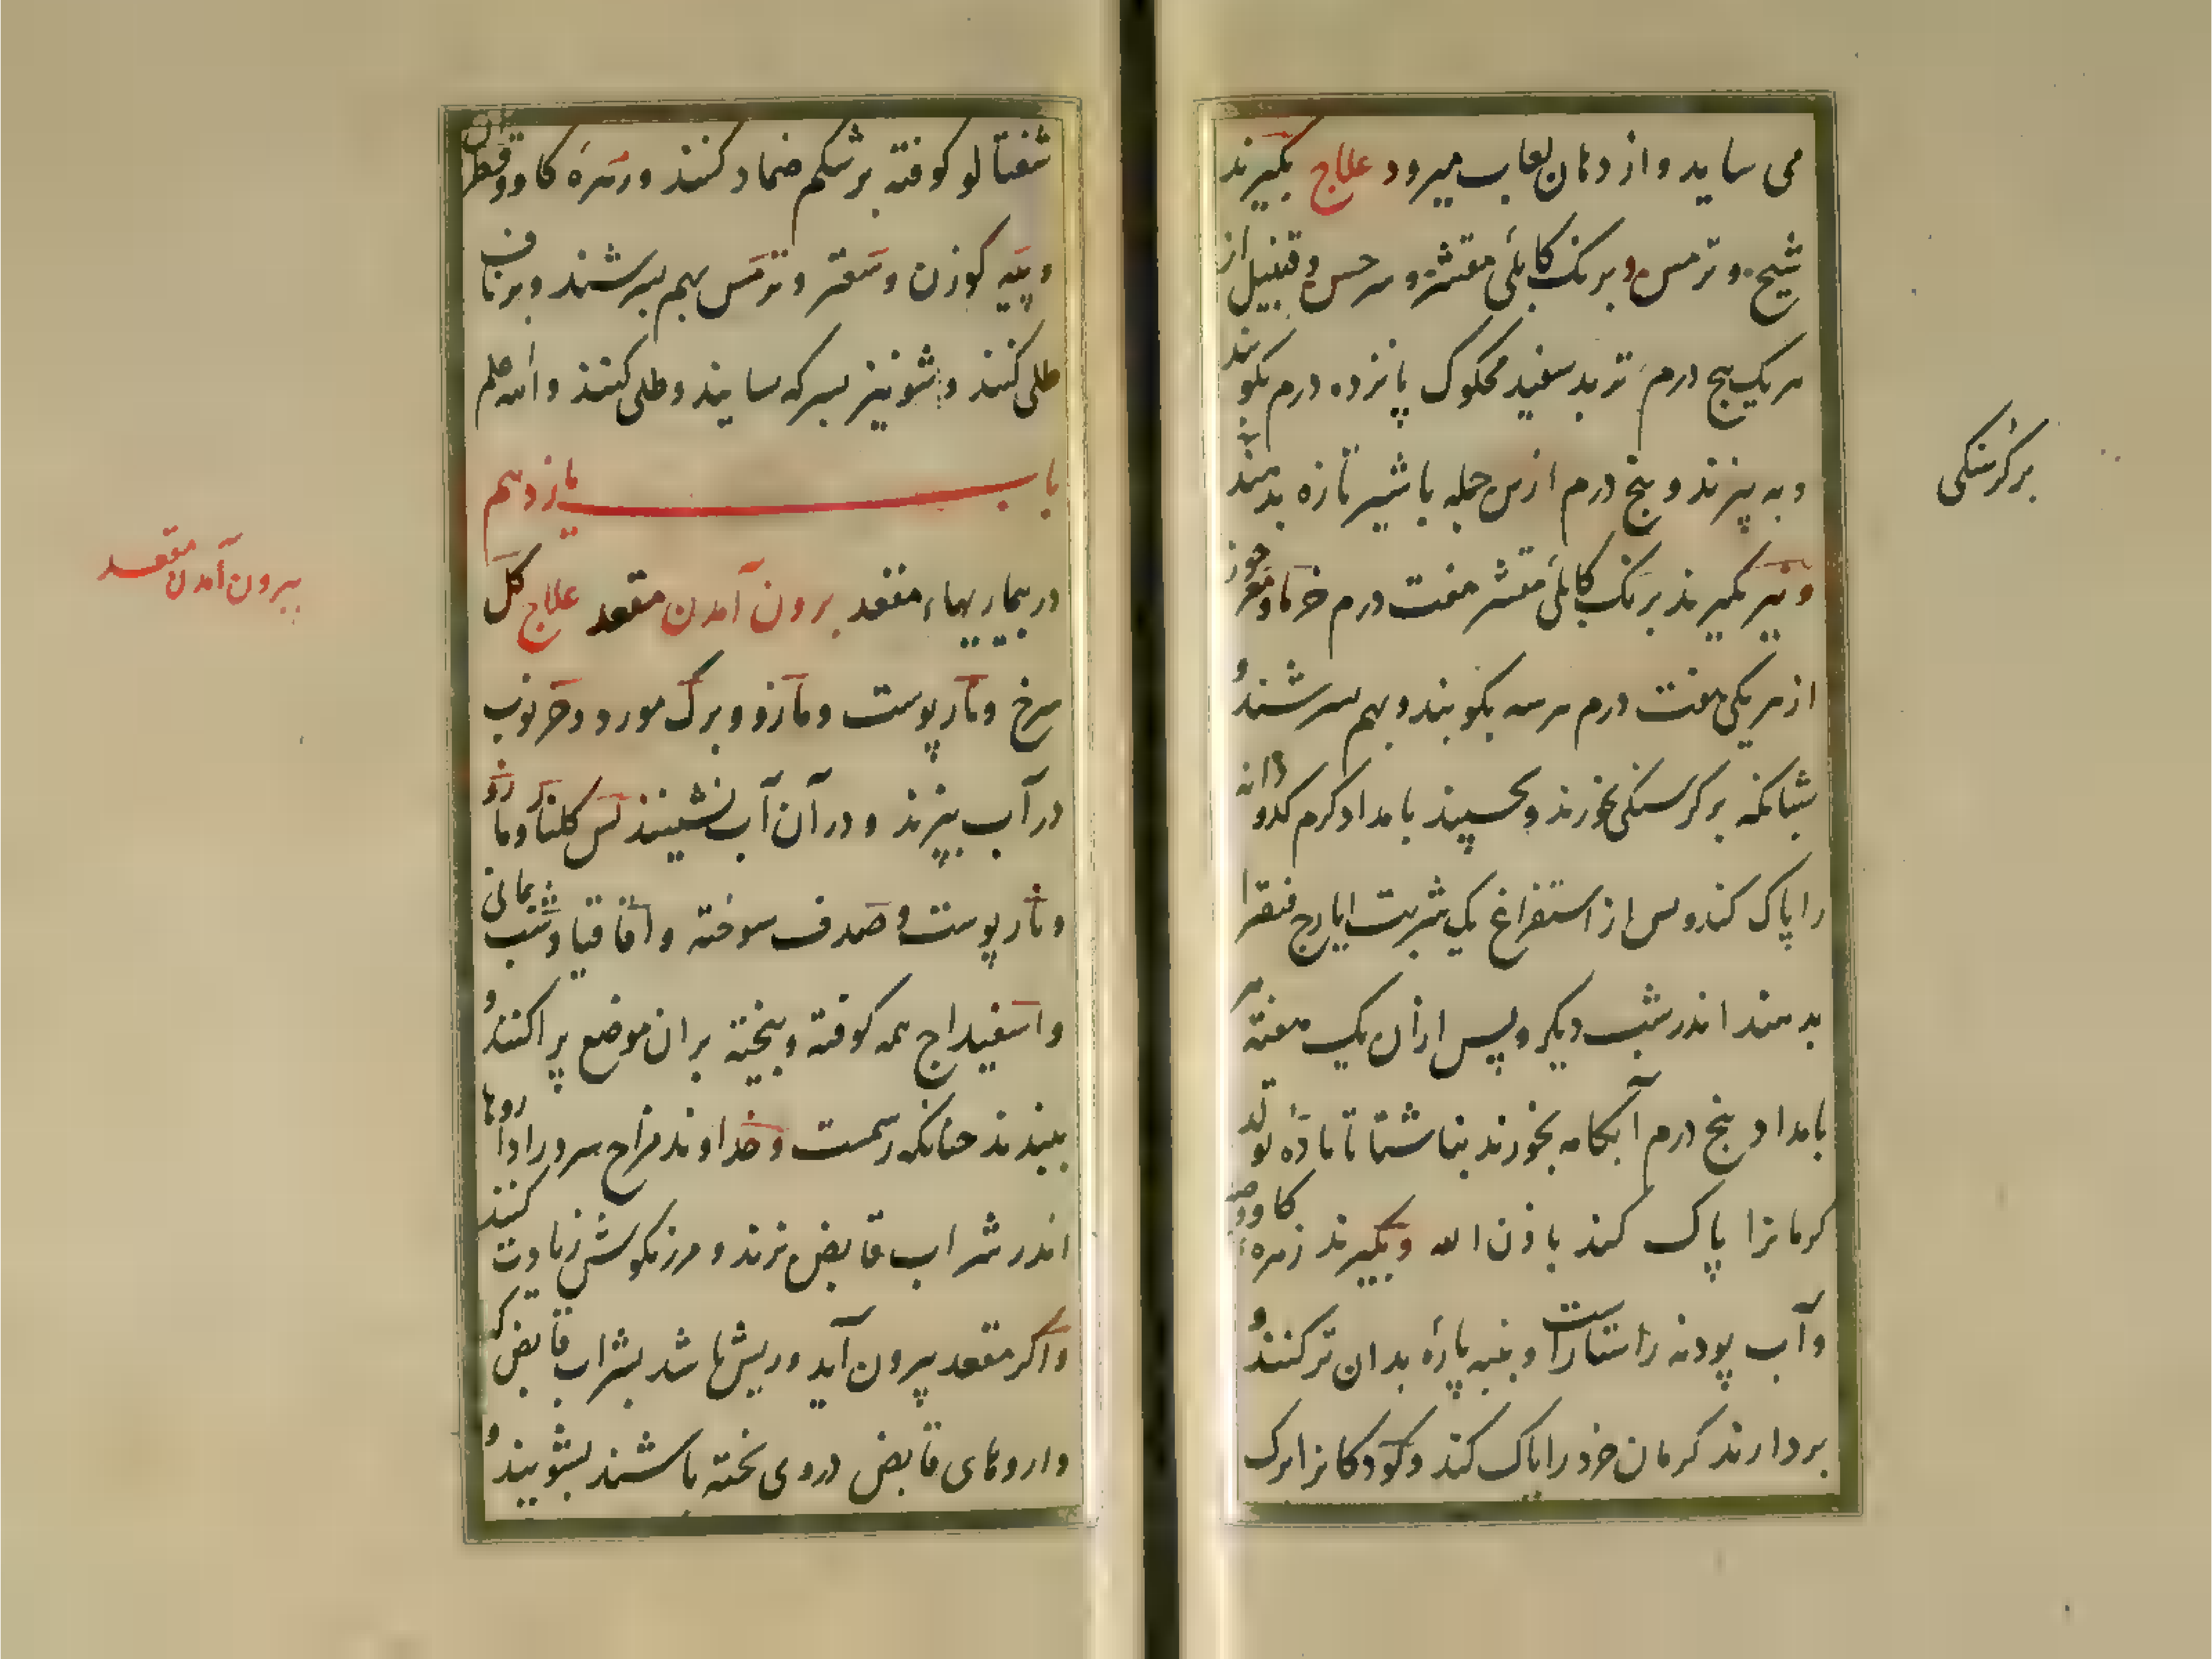 می ساید و از دهان لعاب میرود علاج بگیرند
شیح و ترمس و برنک کابلی مقشر و سرخس و قنبیل از
هر یک پنج درم تربد سفید محکوک پانزده درم بکوبند
و به پزند و پنج درم ازین جمله با شیر تازه بدهند
و نیز بگیرند برنک کابلی مقشر هفت درم خرما و مغز جوز
از هر یکی هفت درم هر سه بکوبند و بهم سرشند و
شبانکه بر کرسنکی بخورند و بخسپند بامداد کرم کدودانه
را پاک کند و پس از استفراغ یک شربت ایارج فیقرا
بدهند اندر شب دیکر و پس از آن یک هفته هر
بامداد پنج درم آبکامه بخورند بناشتا تا مادّه تولد
کرمانرا پاک کند باذن الله و بگیرند زهره کاو
و آب پودنه راستاراست و پنبه پارهٔ بدان تر کنند و
بردارند کرمان خرد را پاک کند و کودکانرا برک
بر کرسنکی
شفتالو کوفته بر شکم ضماد کنند و زهره کاو و قطران
و پیه کوزن و سعتر و ترمس بهم بسرشند و بر ناف
طلی کنند و شونیز بسرکه سایند و طلی کنند والله اعلم
باب یازدهم
در بیماریهاء مقعد برون آمدن مقعد علاج کل
سرخ و نارپوست و مازو و برک مورد و خرنوب
در آب بپزند و در آن آب نشینند پس کلنار و مازو
و نارپوست و صدف سوخته و اقاقیا و شب یمانی
و اسفیداج همه کوفته و بیخته بر ان موضع پراکنند و
ببندند چنانکه رسمست و خداوند مزاج سرد را داروها
اندر شراب قابض پزند و مرزنکوش زیادت کنند
و اکر مقعد بیرون آید و ریش باشد بشراب قابض که
داروهای قابض در وی پخته باشند بشویند و
بیرون آمدن مقعد